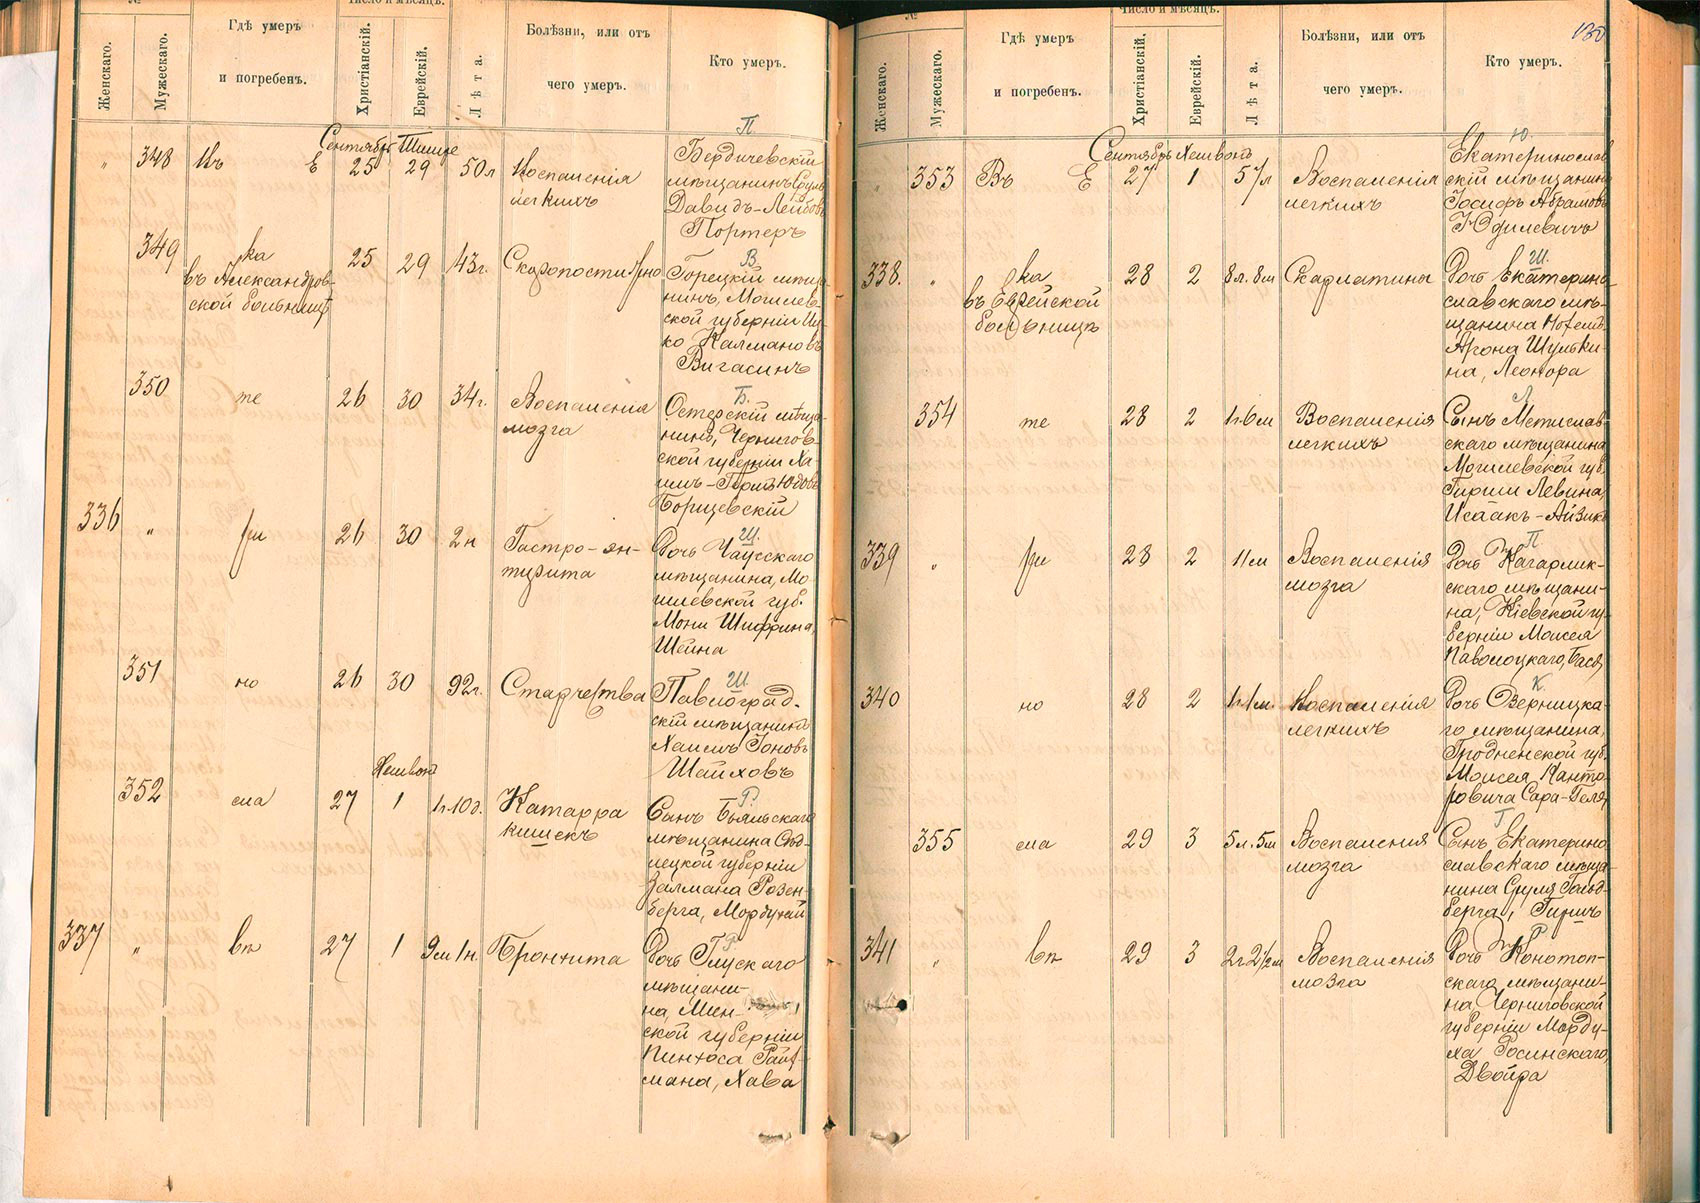 №
Число и мѣсяцъ.
Женскаго.
Мужескаго.
Гдѣ умеръ
и погребенъ.
Христіанскій.
Еврейскій.
Лѣта.
Болѣзни, или отъ
чего умеръ.
Кто умеръ.
П.
Сентябрь Тишре
" 348 Въ Е 25 29 50л Воспаленія
легкихъ
Бердичевскій
мѣщанинъ Сруль
Давидъ-Лейбовъ
Портеръ
В.
349 ка 25 29 43г. Скоропостижно
въ Александров-
ской больницѣ
Горецкій мѣща-
нинъ, Могилев-
ской губерніи Ицко
Калмановъ
Вигасинъ
Б.
350 те 26 30 34г. Воспаленія
мозга
Остерскій мѣща-
нинъ, Чернигов-
ской губерніи Ха-
имъ-Гершъ Юдовъ
Борщевскій
Ш.
336 " ри 26 30 2н Гастро-эн-
терита
Дочь Чаусскаго
мѣщанина, Мо-
гилевской губ.
Мони Шифрина,
Шейна
Ш.
351 но 26 30 92г. Старчества
Павлоград-
скій мѣщанинъ
Хаимъ Іоновъ
Шайховъ
Хешвонъ
Р.
352 сла 27 1 1г.10д. Катарра
кишекъ
Сынъ Бяльскаго
мѣщанина Сѣд-
лецкой губерніи
Залмана Розен-
берга, Мордухай
Р
337 " вѣ 27 1 9м 1н. Бронхита
Дочь Глускаго
мѣщани-
на, Мин-
ской губерніи
Пинхоса Райх-
мана, Хава
130
№
Число и мѣсяцъ.
Женскаго.
Мужескаго.
Гдѣ умеръ
и погребенъ.
Христіанскій.
Еврейскій.
Лѣта.
Болѣзни, или отъ
чего умеръ.
Кто умеръ.
Ю.
Сентябрь Хешвонъ
" 353 Въ Е 27 1 57л Воспаленія
легкихъ
Екатеринослав-
скій мѣщанинъ
Іосифъ Абрамовъ
Юдилевичъ
Ш.
338. " ка 28 2 8л. 8м Скарлатины
въ Еврейской
больницѣ
Дочь Екатерино-
славскаго мѣ-
щанина Нохемъ
Арона Шульки-
на, Леонора
Л
354 те 28 2 1г.6м Воспаленія
легкихъ
Сынъ Мстислав-
скаго мѣщанина
Могилевской губ.
Гирши Левина,
Исаакъ-Айзикъ
П
339 " ри 28 2 11м Воспаленія
мозга
Дочь Кагарлик-
скаго мѣщани-
на, Кіевской гу-
берніи Моисея
Паволоцкаго, Бася
К.
340 но 28 2 1г.1м. Воспаленія
легкихъ
Дочь Озерницка-
го мѣщанина,
Гродненской губ.
Моисея Канто-
ровича Сара-Геля,
Г
355 сла 29 3 5л.5м Воспаленія
мозга
Сынъ Екатерино-
славскаго мѣща-
нина Сруля Гольд-
берга, Гиршъ
Р
341 " вѣ 29 3 2г.2½м Воспаленія
мозга
Дочь Конотоп-
скаго мѣщани-
на Черниговской
губерніи Морду-
ха Росинскаго,
Двойра